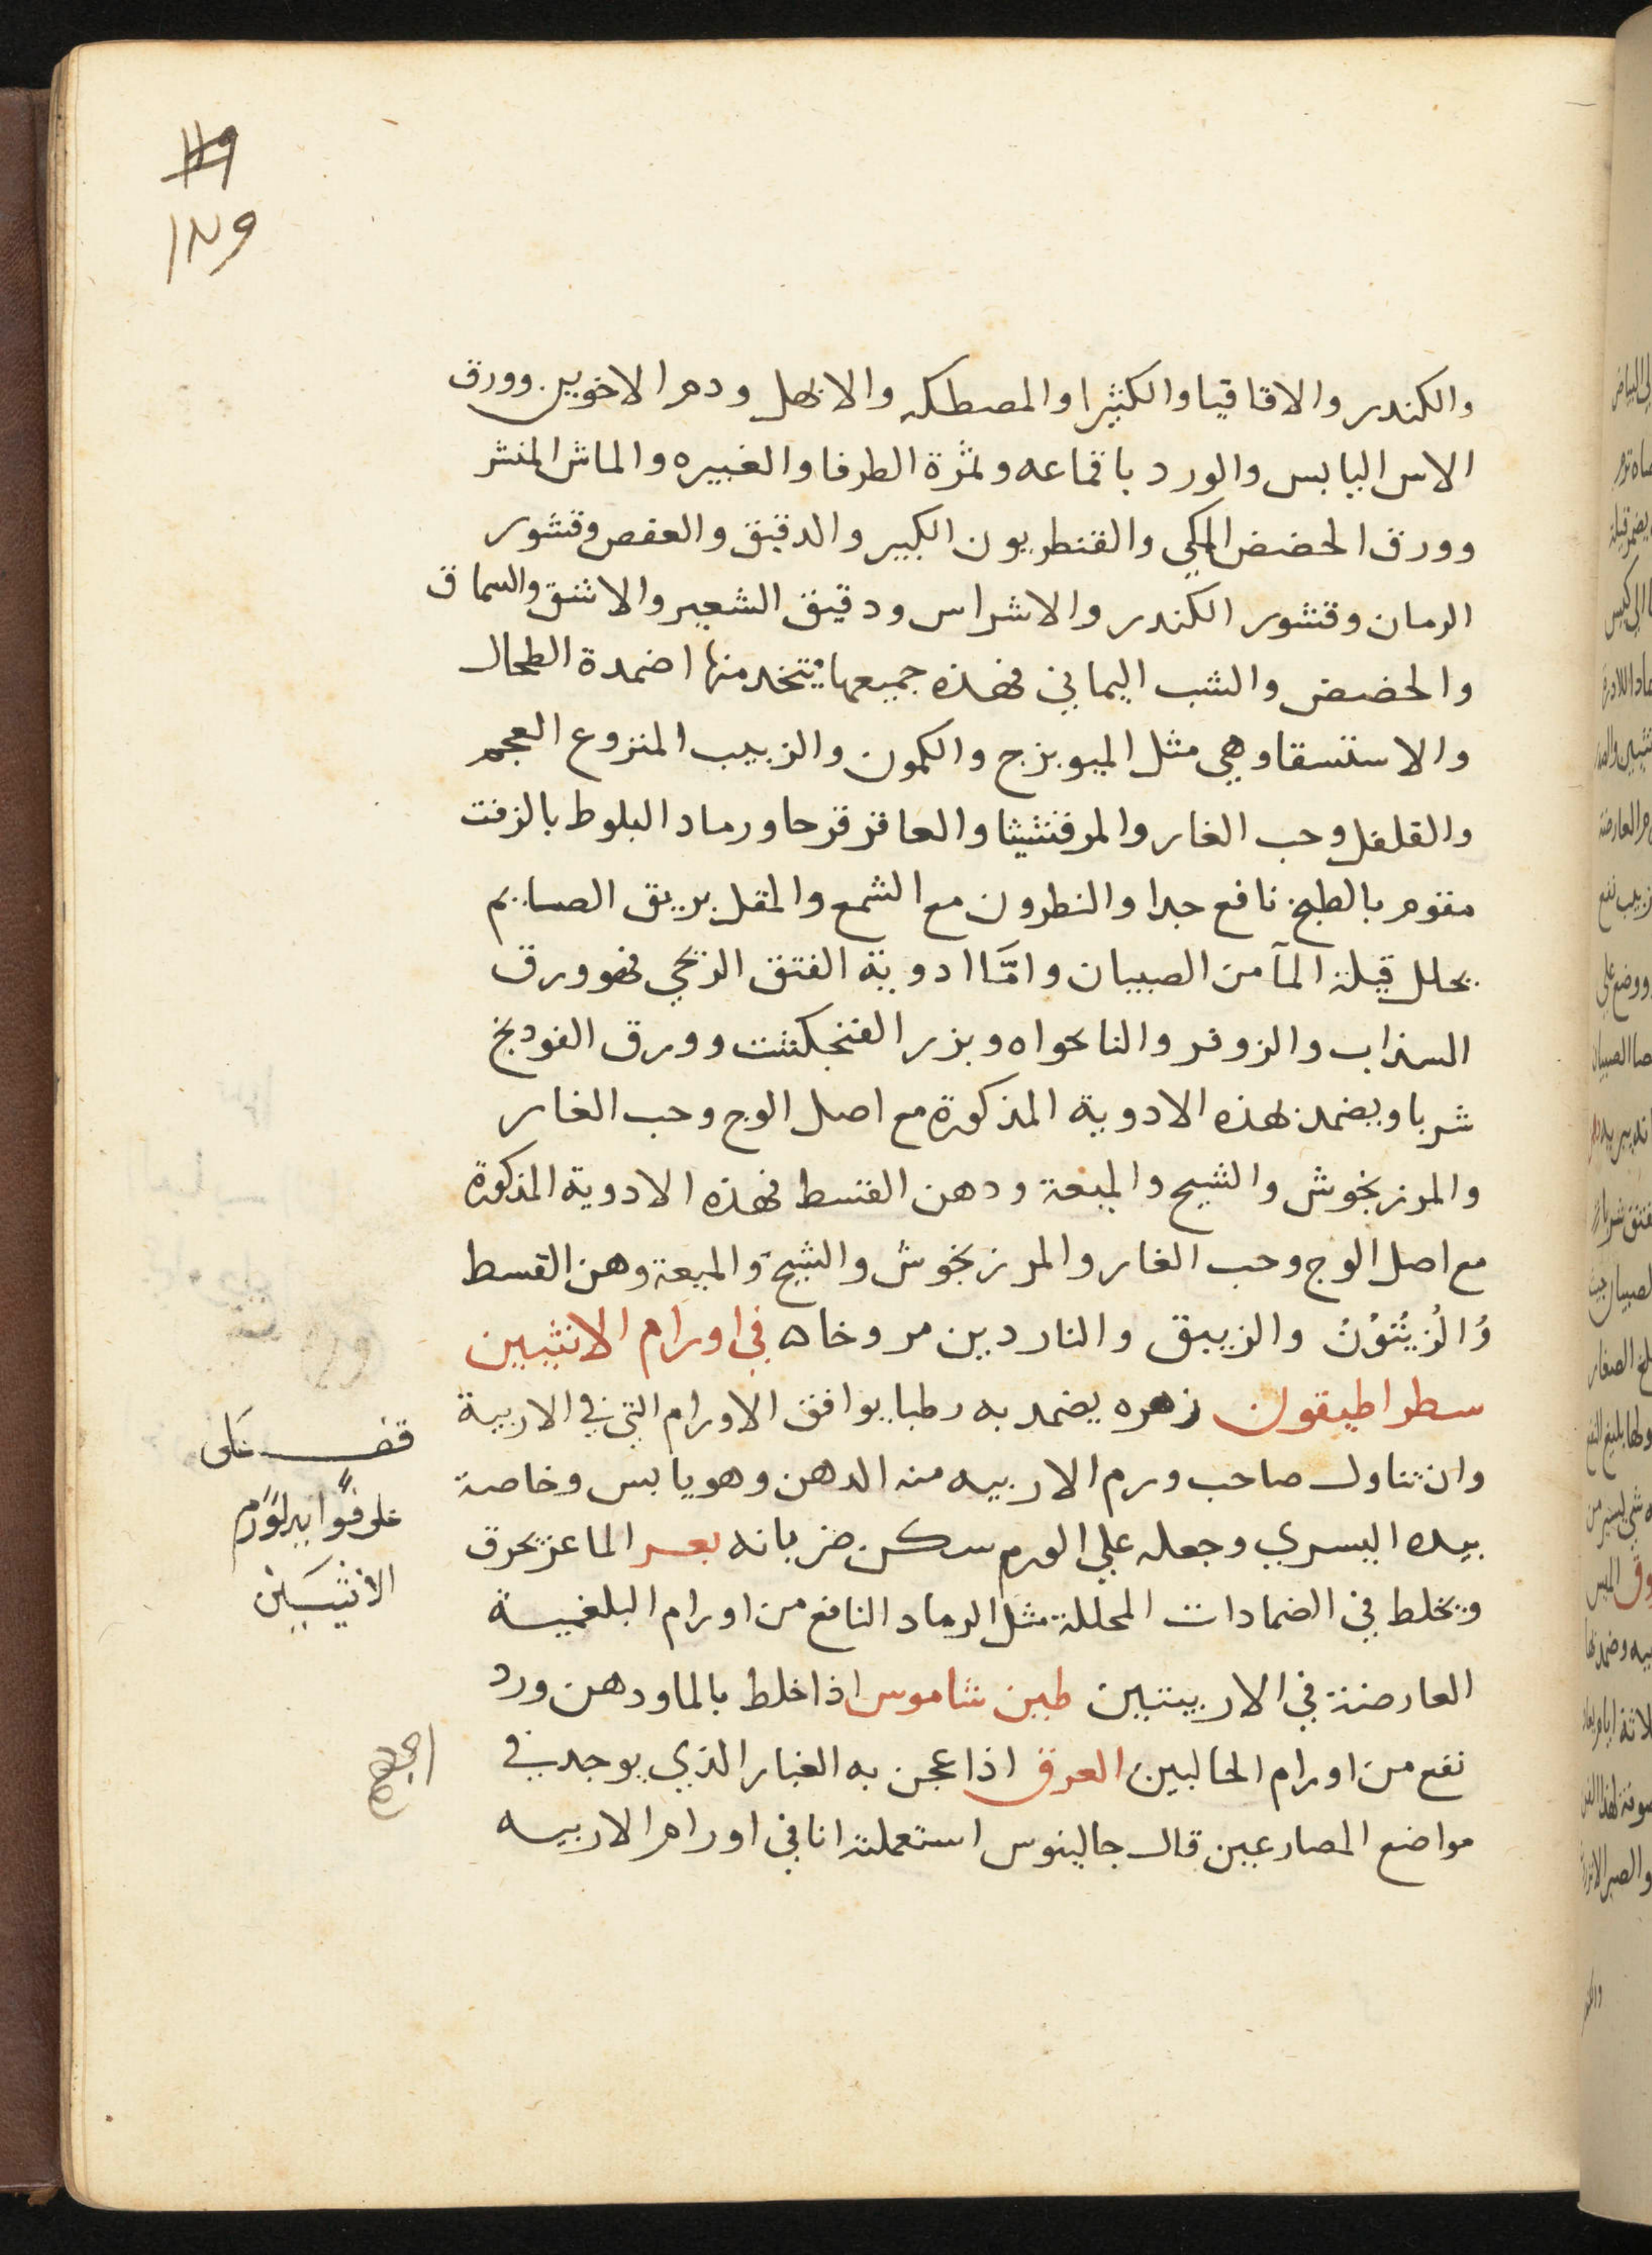 والكندر والاقاقيا والكثيرا والمصطكه والابهل ودم الاخوين وورق
الاس اليابس والورد باقماعه وثمرة الطرفا والغبيره والماش المنشر
وورق الحضض المكي والقنطريون الكبير والدقيق والعفص وقشور
الرمان وقشور الكندر والاشراس ودقيق الشعير والاشق والسماق
والحضض والشب اليماني فهذه جميعها يتخد منها اضمدة الطحال
والاستسقا وهي مثل الميوبزج والكمون والزبيب المنزوع العجم
والقلفل وحب الغار والمرقشيثا والعاقر قرحا ورماد البلوط بالزفت
مقوم بالطبخ نافع جدا والنطرون مع الشمع والمقل بريق الصايم
يحلل قيلة المآ من الصبيان وامّا ادوية الفتق الريحي فهو ورق
السذاب والزوفر والنانحواه وبزر الفنجكشت وورق الفودنج
شربا ويضمد بهذه الادوية المذكورة مع اصل الوج وحب الغار
والمرزنجوش والشيح والميعة ودهن القسط فهذه الادوية المذكورة
مع اصل الوج وحب الغار والمرزنجوش والشيح والميعة وهن القسط
والزيتون والزيبق والناردين مروخاه في اورام الانثيين
سطراطيقون زهره يضمد به رطبا يوافق الاورام التي في الاربية
وان تناول صاحب ورم الاربيه منه الدهن وهو يابس وخاصة
بيده اليسري وجعله علي الورم سكن ضربانه بعر الماعز يحرق
ويخلط في الضمادات المحللة مثل الرماد النافع من اورام البلغمية
العارضة في الاربيتين طين شاموس اذا خلط بالما ودهن ورد
نفع من اورام الحالبين العرق اذا عجن به الغبار الذي يوجد في
مواضع المصارعين قال جالينوس استعملته انا في اورام الاربيه
قف على
الانثيين